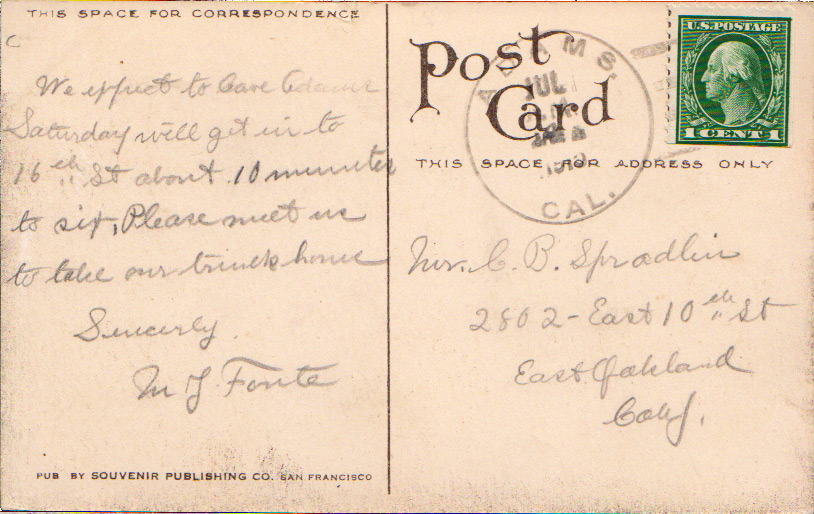 THIS SPACE FOR CORRESPONDENCE
We expect to leave Adams
Saturday will get in to
16th St about 10 minutes
to six, Please meet us
to take our trunk home
Sincerly
M J Fonte
PUB BY SOUVENIR PUBLISHING CO. SAN FRANCISCO
Post
Card
THIS SPACE FOR ADDRESS ONLY
ADAMS.
JUL
CAL.
U.S. POSTAGE
1 CENT 1
Mr. C. B. Spradlin
2802-East 10th St
East Oakland
Calf.